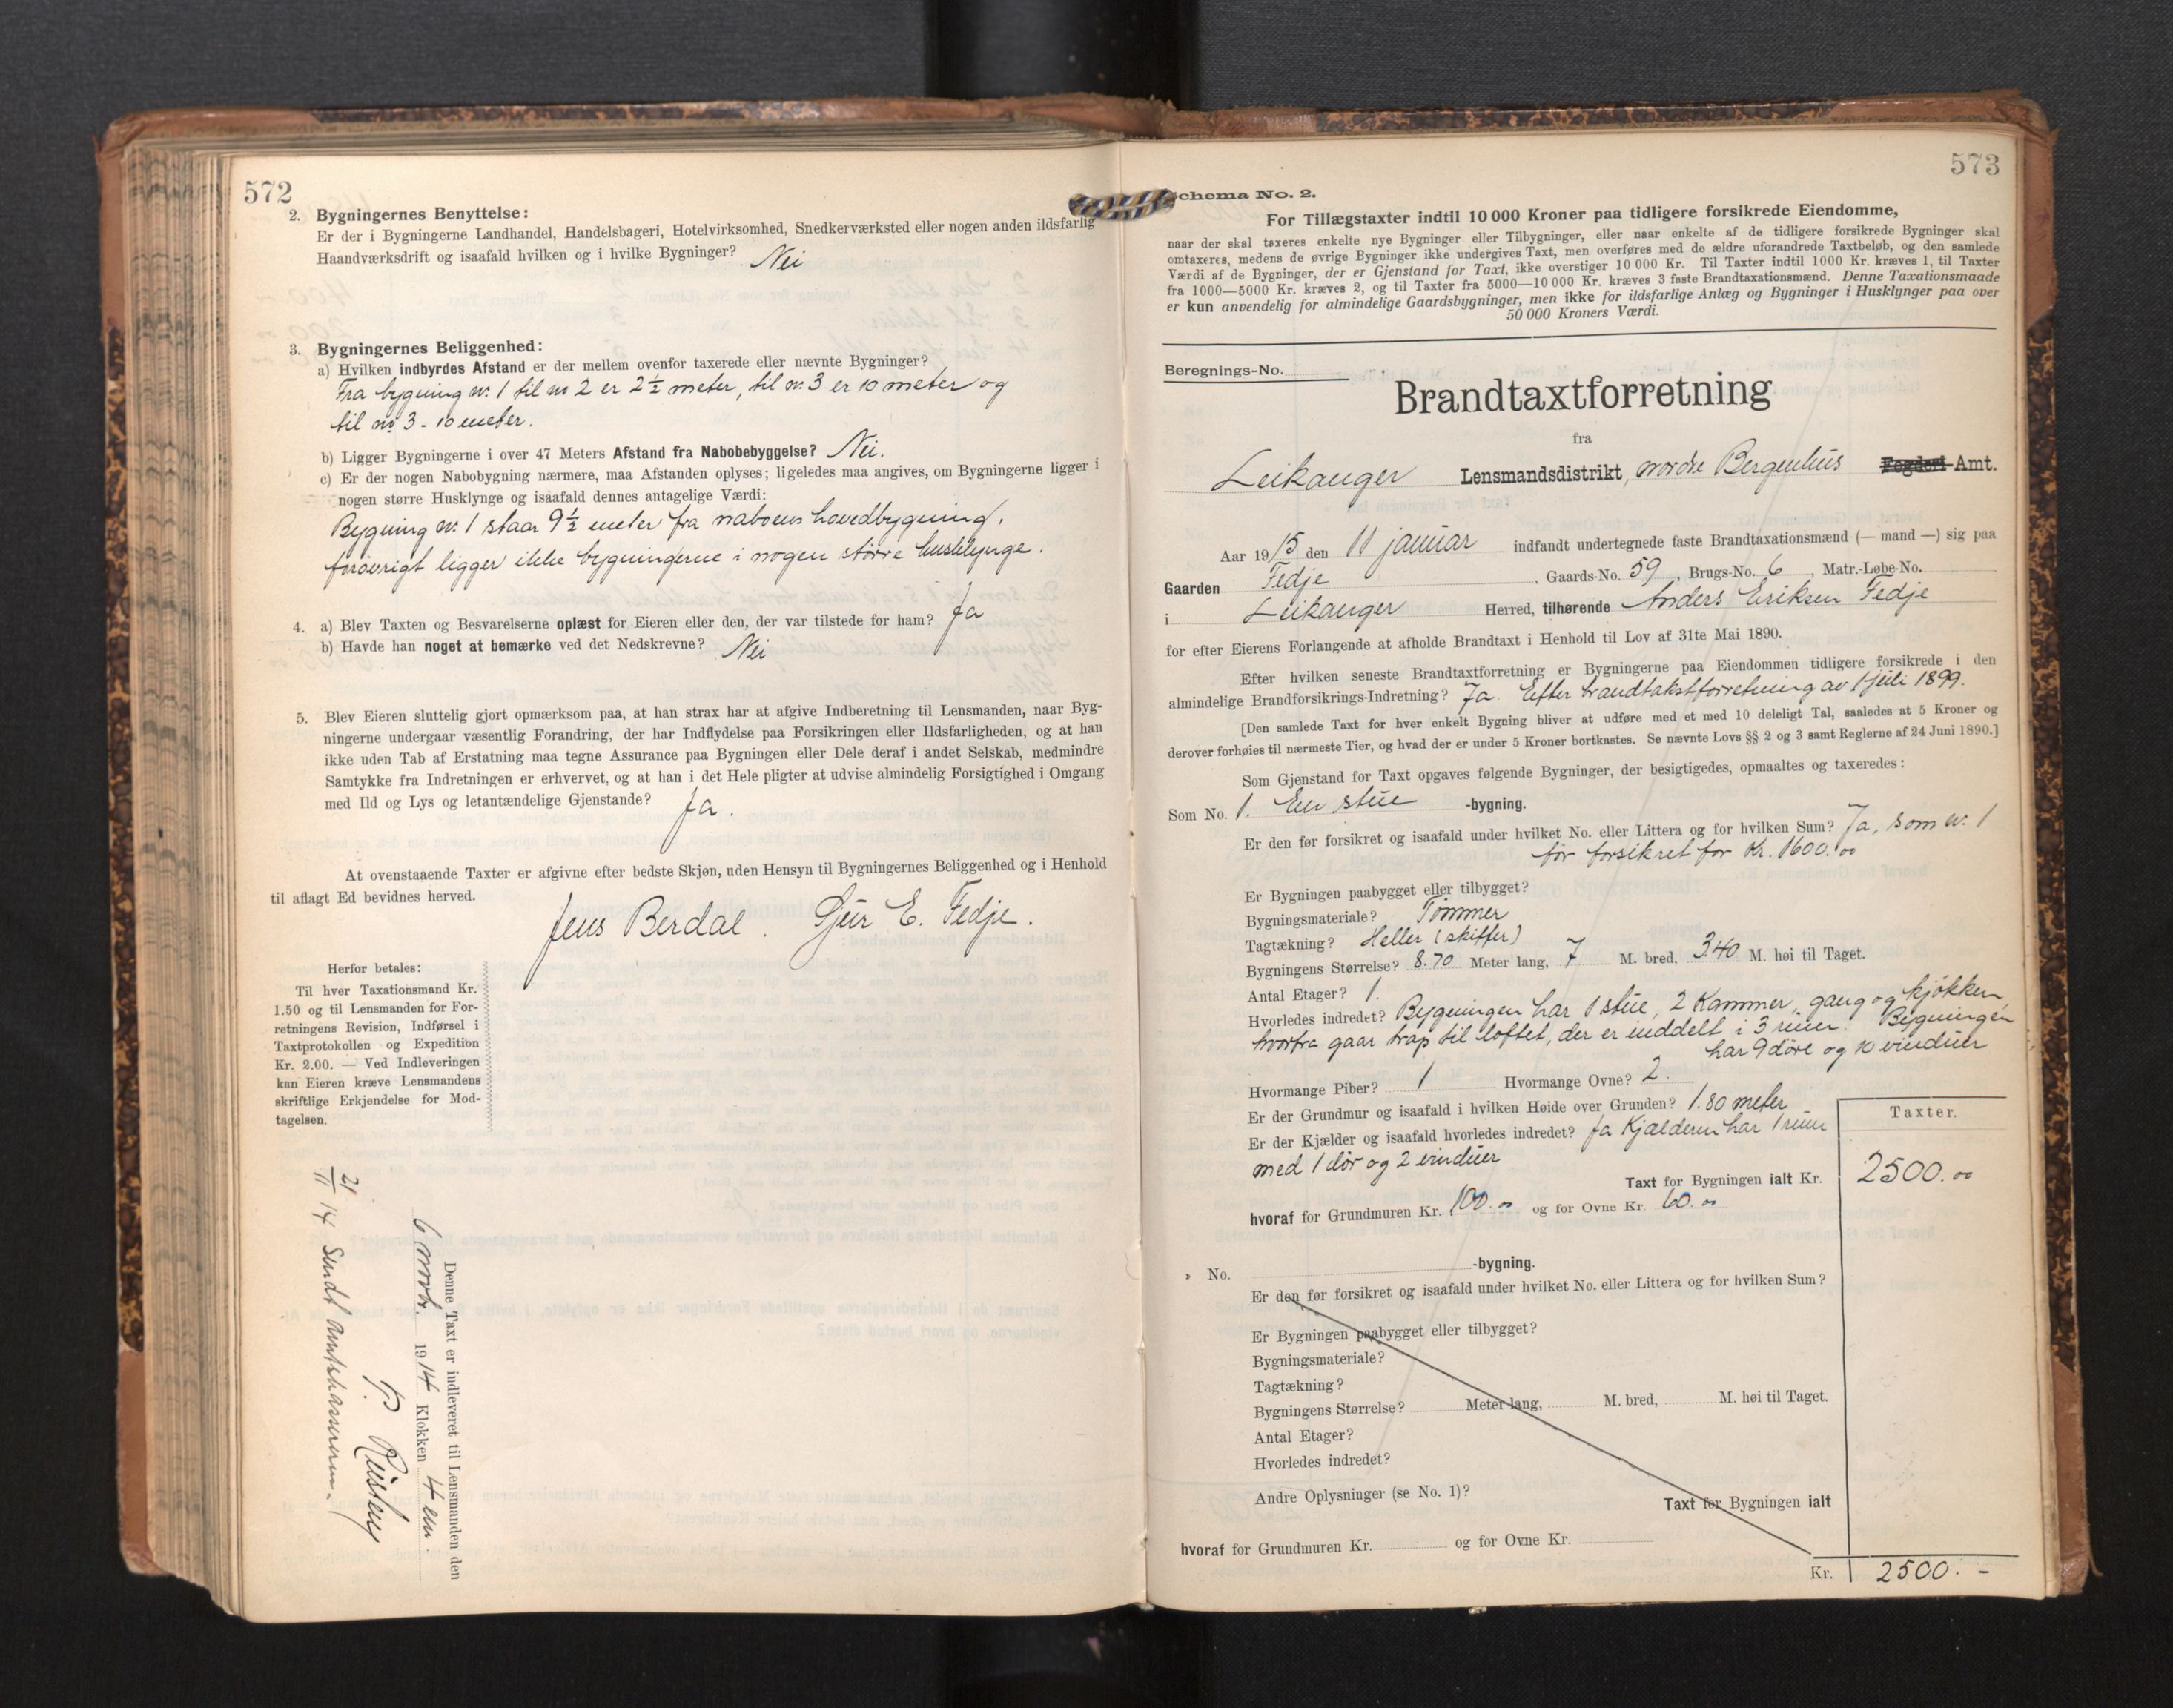 572
2. Bygningernes Benyttelse:
Er der i Bygningerne Landhandel, Handelsbageri, Hotelvirksomhed, Snedkerværksted eller nogen anden ildsfarlig
Haandværksdrift og isaafald hvilken og i hvilke Bygninger? Nei
3. Bygningernes Beliggenhed:
a) Hvilken indbyrdes Afstand er der mellem ovenfor taxerede eller nævnte Bygninger?
Fra bygning nr. 1 til nr 2 er 2½ meter, til nr. 3 er 10 meter og
til nr 3 - 10 meter.
b) Ligger Bygningerne i over 47 Meters Afstand fra Nabobebyggelse? Nei.
c) Er der nogen Nabobygning nærmere, maa Afstanden oplyses; ligeledes maa angives, om Bygningerne ligger i
nogen større Husklynge og isaafald dennes antagelige Værdi:
Bygning nr. 1 staar 9½ meter fra naboens hovedbygning,
forøvrigt ligger ikke bygningerne i nogen større husklynge.
4. a) Blev Taxten og Besvarelserne oplæst for Eieren eller den, der var tilstede for ham? Ja
b) Havde han noget at bemærke ved det Nedskrevne? Nei
5. Blev Eieren sluttelig gjort opmærksom paa, at han strax har at afgive Indberetning til Lensmanden, naar Byg-
ningerne undergaar væsentlig Forandring, der har Indflydelse paa Forsikringen eller Ildsfarligheden, og at han
ikke uden Tab af Erstatning maa tegne Assurance paa Bygningen eller Dele deraf i andet Selskab, medmindre
Samtykke fra Indretningen er erhvervet, og at han i det Hele pligter at udvise almindelig Forsigtighed i Omgang
med Ild og Lys og letantændelige Gjenstande? Ja.
At ovenstaaende Taxter er afgivne efter bedste Skjøn, uden Hensyn til Bygningernes Beliggenhed og i Henhold
til aflagt Ed bevidnes herved.
Jens Berdal. Sjur E. Fedje.
Herfor betales:
Til hver Taxationsmand Kr.
1.50 og til Lensmanden for For-
retningens Revision, Indførsel i
Taxtprotokollen og Expedition
Kr. 2.00. — Ved Indleveringen
kan Eieren kræve Lensmandens
skriftlige Erkjendelse for Mod-
tagelsen.
Denne Taxt er indleveret til Lensmanden den
6 novbr. 1914 Klokken 4 em.
21/11 14 Sendt
573
Schema No. 2.
For Tillægstaxter indtil 10 000 Kroner paa tidligere forsikrede Eiendomme,
naar der skal taxeres enkelte nye Bygninger eller Tilbygninger, eller naar enkelte af de tidligere forsikrede Bygninger skal
omtaxeres, medens de øvrige Bygninger ikke undergives Taxt, men overføres med de ældre uforandrede Taxtbeløb, og den samlede
Værdi af de Bygninger, der er Gjenstand for Taxt, ikke overstiger 10 000 Kr. Til Taxter indtil 1000 Kr. kræves 1, til Taxter
fra 1000—5000 Kr. kræves 2, og til Taxter fra 5000—10 000 Kr. kræves 3 faste Brandtaxationsmænd. Denne Taxationsmaade
er kun anvendelig for almindelige Gaardsbygninger, men ikke for ildsfarlige Anlæg og Bygninger i Husklynger paa over
50 000 Kroners Værdi.
Beregnings-No.
Brandtaxtforretning
fra
Leikanger Lensmandsdistrikt, nordre Bergenhus Fogderi-Amt.
Aar 1915 den 11 januar indfandt undertegnede faste Brandtaxationsmænd (— mand —) sig paa
Gaarden Fedje, Gaards-No. 59, Brugs-No. 6, Matr.-Løbe-No.
i Leikanger Herred, tilhørende Anders Eriksen Fedje
for efter Eierens Forlangende at afholde Brandtaxt i Henhold til Lov af 31te Mai 1890.
Efter hvilken seneste Brandtaxtforretning er Bygningerne paa Eiendommen tidligere forsikrede i den
almindelige Brandforsikrings-Indretning? Ja. Efter brandtakstforretning av 1 juli 1899.
[Den samlede Taxt for hver enkelt Bygning bliver at udføre med et med 10 deleligt Tal, saaledes at 5 Kroner og
derover forhøies til nærmeste Tier, og hvad der er under 5 Kroner bortkastes. Se nævnte Lovs §§ 2 og 3 samt Reglerne af 24 Juni 1890.]
Som Gjenstand for Taxt opgaves følgende Bygninger, der besigtigedes, opmaaltes og taxeredes:
Som No. 1. En stue -bygning.
Er den før forsikret og isaafald under hvilket No. eller Littera og for hvilken Sum? Ja, som nr. 1
før forsikret for Kr. 1600.00
Er Bygningen paabygget eller tilbygget?
Bygningsmateriale? Tømmer
Tagtækning? Heller (skiffer)
Bygningens Størrelse? 8.70 Meter lang, 7 M. bred, 3.40 M. høi til Taget.
Antal Etager? 1.
Hvorledes indredet? Bygningen har 1 stue, 2 Kammer, gang og kjøkken,
hvorfra gaar trap til loftet, der er inddelt i 3 rum. Bygningen
har 9 døre og 10 vinduer
Hvormange Piber? 1 Hvormange Ovne? 2.
Er der Grundmur og isaafald i hvilken Høide over Grunden? 1.80 meter
Er der Kjælder og isaafald hvorledes indredet? Ja Kjælderen har 1 rum
med 1 dør og 2 vinduer
Taxter.
Taxt for Bygningen ialt Kr. 2500.00
hvoraf for Grundmuren Kr. 100.00 og for Ovne Kr. 60.00
» No. -bygning.
Er den før forsikret og isaafald under hvilket No. eller Littera og for hvilken Sum?
Er Bygningen paabygget eller tilbygget?
Bygningsmateriale?
Tagtækning?
Bygningens Størrelse? Meter lang, M. bred, M. høi til Taget.
Antal Etager?
Hvorledes indredet?
Andre Oplysninger (se No. 1)?
Taxt for Bygningen ialt
hvoraf for Grundmuren Kr. og for Ovne Kr.
Kr. 2500.-